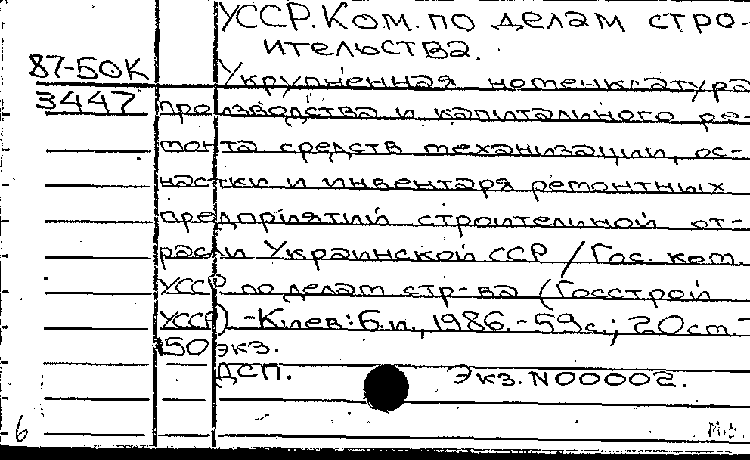 УССР. Ком. по делам стро-
ительства.
87-50К Укрупненная номенклатура
3447 производства и капитального ре-
монта средств механизации, ос-
настки и инвентаря ремонтных
предприятий строительной от-
расли Украинской ССР / Гос. ком.
УССР по делам стр-ва (Госстрой
УССР). - Киев: Б.и., 1986. - 59 с.; 20 см. -
150 экз.
ДСП. Экз. N 00002.
6